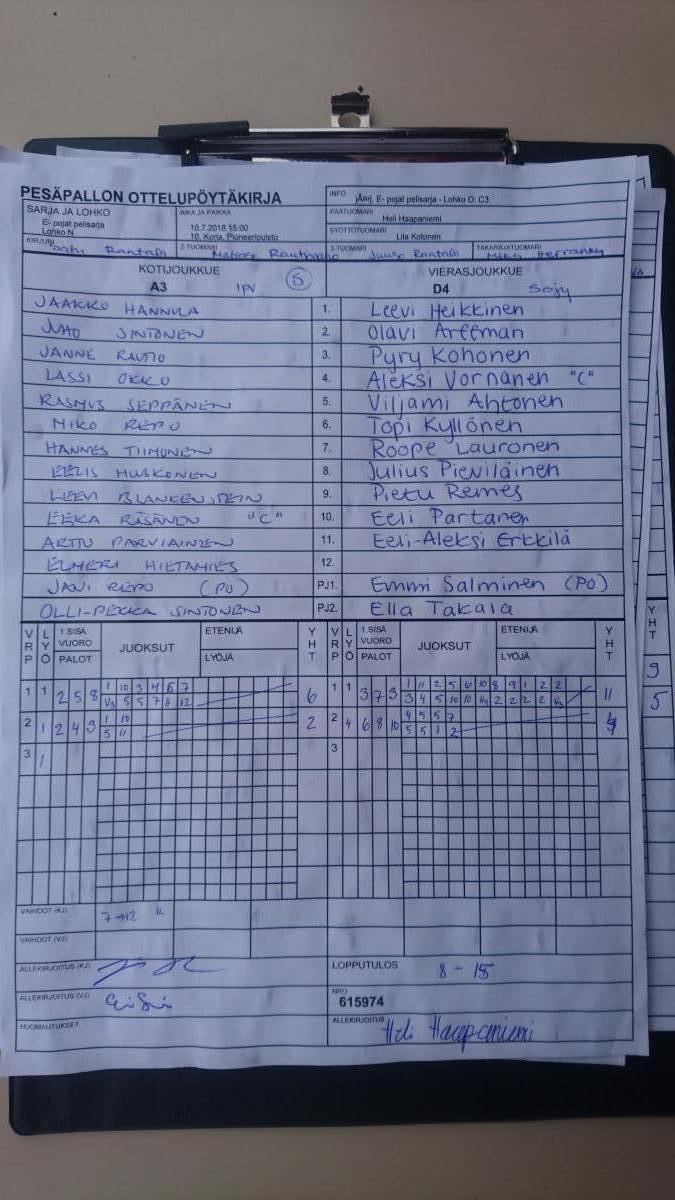 PESÄPALLON OTTELUPÖYTÄKIRJA
INFO
jÄnj. E- pojat pelisarja - Lohko O: C3
SARJA JA LOHKO
E- pojat pelisarja
Lohko N
AIKA JA PAIKKA
10.7.2018 15:00
10. Koria, Pioneeripuisto
PÄÄTUOMARI
Heli Haapaniemi
SYÖTTÖTUOMARI
Lila Kotonen
KIRJURI
Rantala
2-TUOMARI
3-TUOMARI
Juuso Rantala
TAKARAJATUOMARI
KOTIJOUKKUE
A3 IPV B
VIERASJOUKKUE
D4 SoJy
JAAKKO HANNULA 1. Leevi Heikkinen
JUHO SINTONEN 2. Olavi Arffman
JANNE RAUTIO 3. Pyry Kohonen
LASSI OKKO 4. Aleksi Vornanen "C"
RASMUS SEPPÄNEN 5. Viljami Ahtonen
MIKO REPO 6. Topi Kyllönen
HANNES TIIMONEN 7. Roope Lauronen
EELIS HUSKONEN 8. Julius Pieviläinen
LEEVI BLANKENSTEIN 9. Pietu Remes
EEKA RÄSÄNEN "C" 10. Eeli Partanen
ARTTU PARVIAINEN 11. Eeli-Aleksi Erkkilä
ELMERI HIETAMIES 12.
JANI REPO (PO) PJ1. Emmi Salminen (PO)
OLLI-PEKKA SINTONEN PJ2. Ella Takala
VRP LYÖ 1.SISÄ VUORO PALOT JUOKSUT ETENIJÄ LYÖJÄ YHT VRP LYÖ 1.SISÄ VUORO PALOT JUOKSUT ETENIJÄ LYÖJÄ YHT
YHT
9
5
1 1 2 5 8 1 10 3 4 5 7 6 1 1 3 7 3 1 11 2 5 6 10 8 9 1 2 2 11
V3 5 5 7 11 12 3 4 5 10 10 V4 2 2 2 2 V3
2 1 2 4 3 1 10 2 2 4 6 8 10 4 5 5 7 4
5 11 5 5 1 2
3 1 3
VAIHDOT (KJ) 7→12 1L
VAIHDOT (VJ)
ALLEKIRJOITUS (KJ)
LOPPUTULOS 8 - 15
ALLEKIRJOITUS (VJ)
NRO
615974
HUOMAUTUKSET
ALLEKIRJOITUS
Heli Haapaniemi